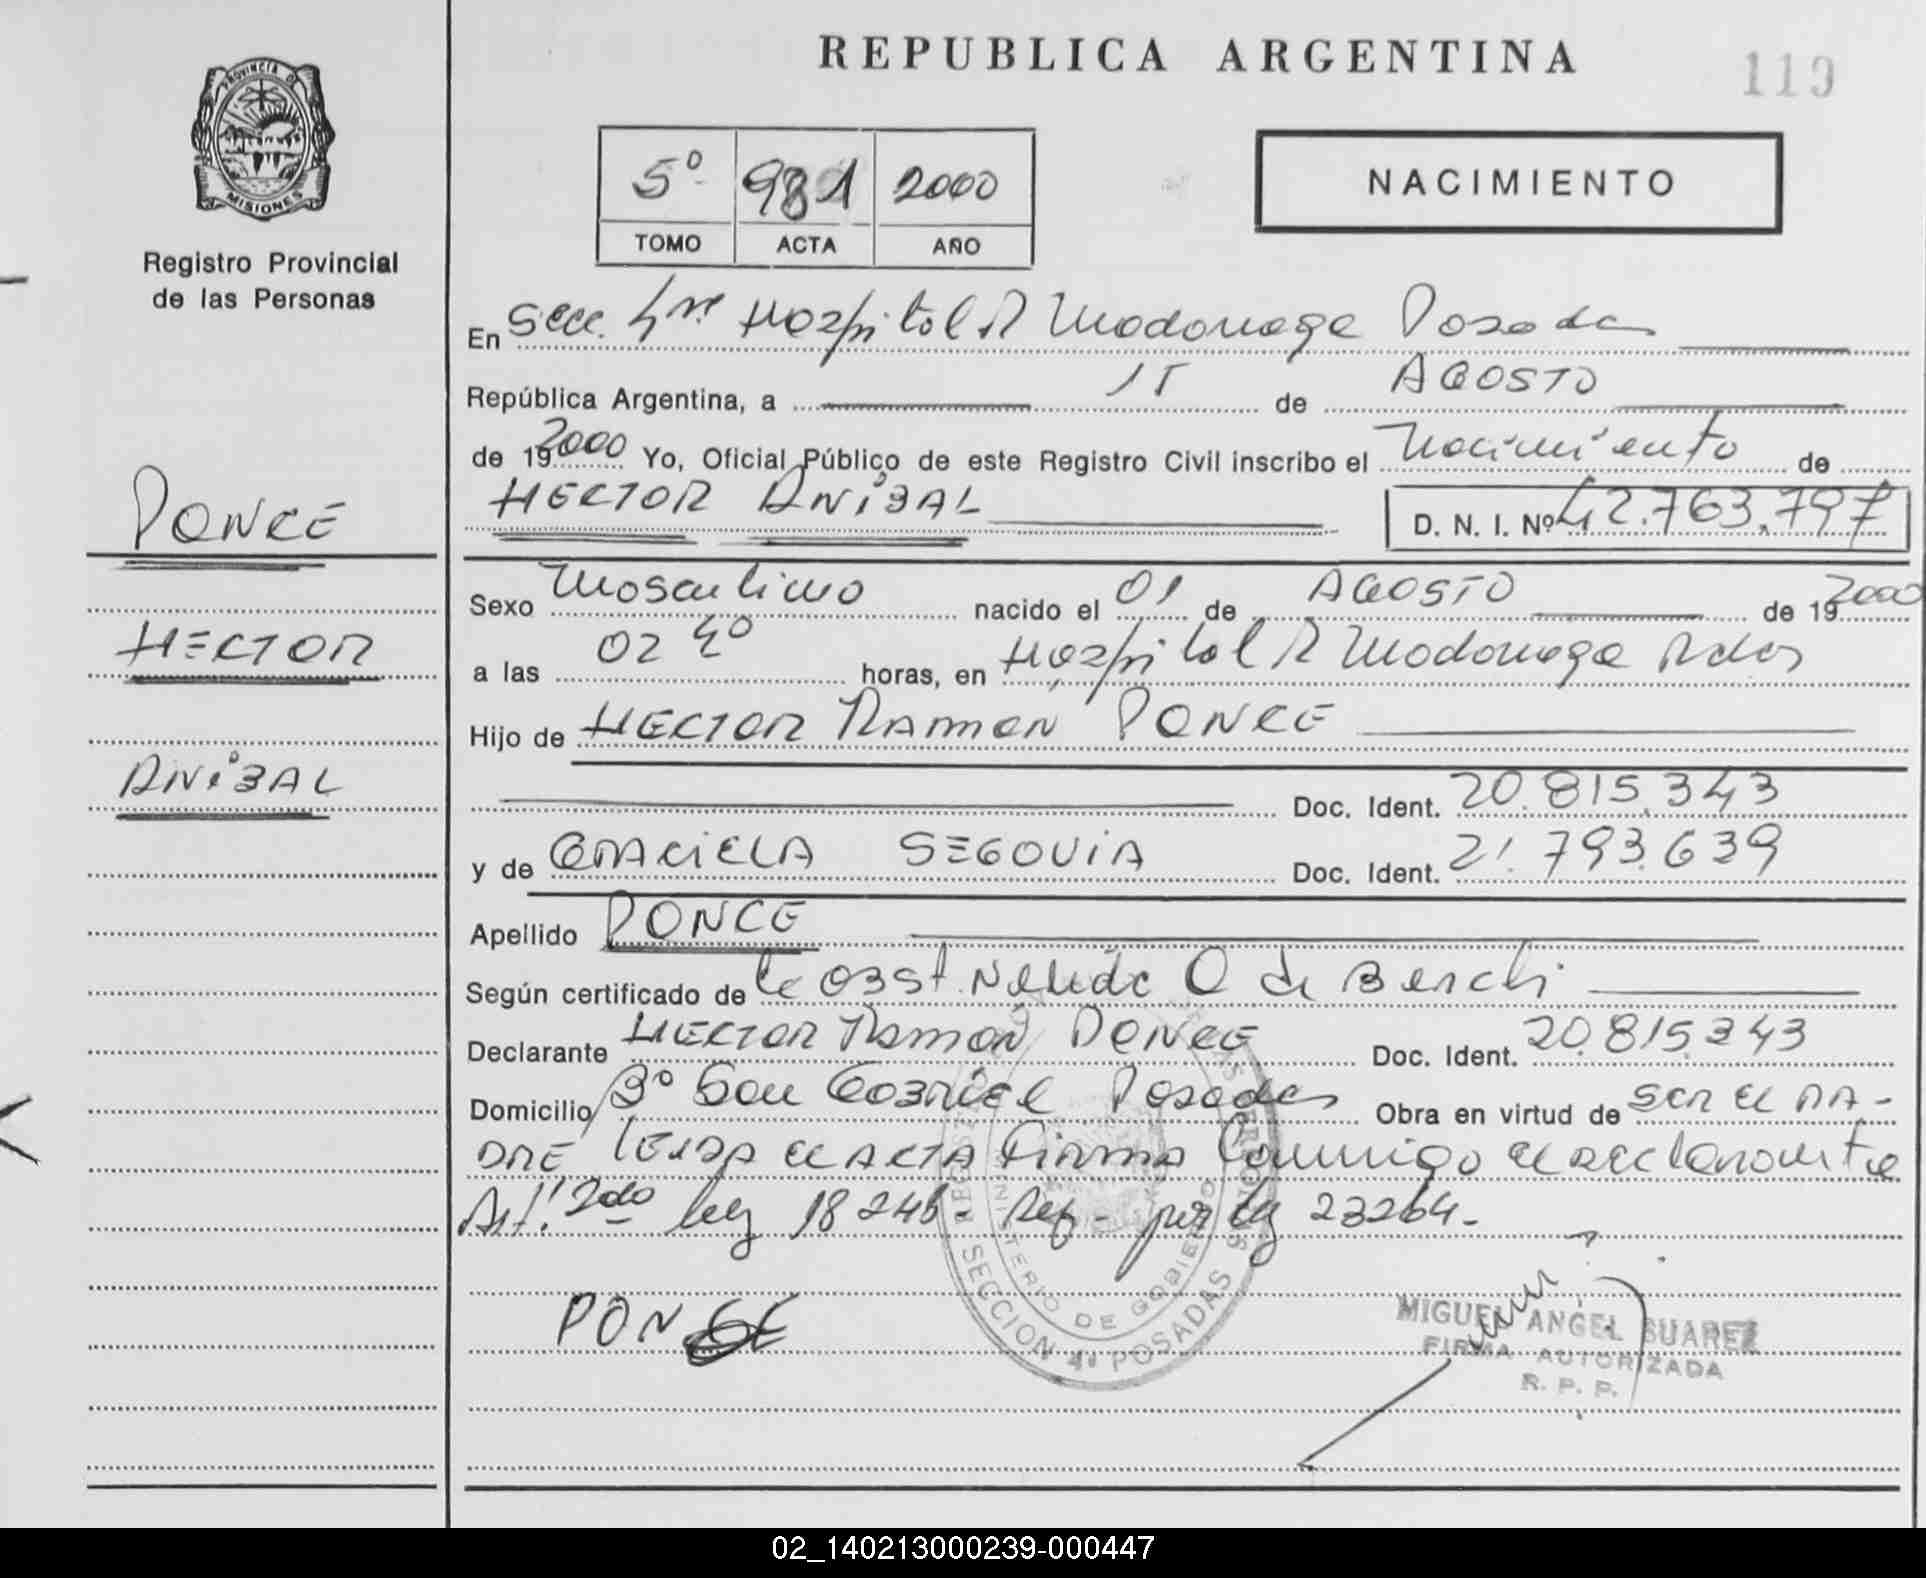 REPUBLICA ARGENTINA
119
PROVINCIA DE
MISIONES
Registro Provincial
de las Personas
5º 981 2000
TOMO ACTA AÑO
NACIMIENTO
En Secc. 4ta Hospital R Madariaga Posadas
República Argentina, a 15 de AGOSTO
de 192000 Yo, Oficial Público de este Registro Civil inscribo el Nacimiento de
HECTOR ANIBAL D. N. I. Nº 42.763.797
PONCE
HECTOR
ANIBAL
Sexo Masculino nacido el 01 de AGOSTO de 192000
a las 02 40 horas, en Hospital R Madariaga Pdas
Hijo de HECTOR RAMON PONCE
Doc. Ident. 20.815.343
y de GRACIELA SEGOVIA Doc. Ident. 21.793.639
Apellido PONCE
Según certificado de la OBST. Nelida O de
Declarante HECTOR RAMON PONCE Doc. Ident. 20.815.343
Domicilio Bº San GABRIEL Posadas Obra en virtud de SER EL PA-
DRE LEIDA EL ACTA FIRMA Conmigo el declarante
Art. 2do ley 18248 - Ref - por ley 23264.-
PONCE
SECCION 4ª POSADAS
MINISTERIO DE GOBIERNO
MIGUEL ANGEL SUAREZ
FIRMA AUTORIZADA
R. P. P.
02_140213000239-000447